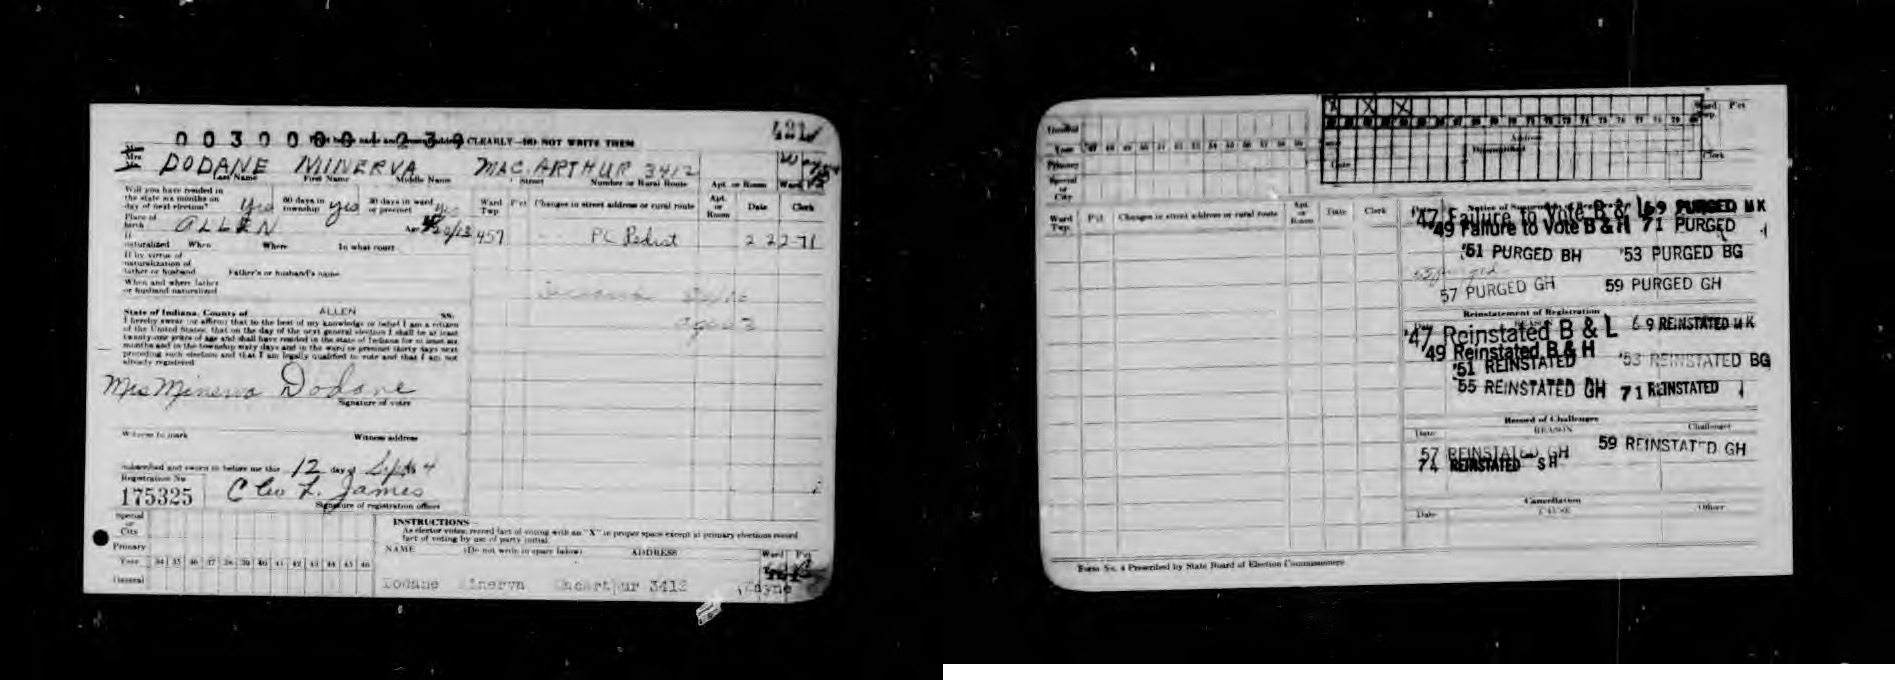 0030000 1239 CLEARLY—DO NOT WRITE THEM
421
DODANE MINERVA MAC ARTHUR 3412 Wayne
Last Name First Name Middle Name Street Number or Rural Route Apt. or Room Ward
Will you have resided in the state six months on day of next election? yes 60 days in township yes 30 days in ward or precinct yes
Ward Twp. P'ct Changes in street address or rural route Apt. or Room Date Clerk
Place of birth ALLEN Age
457 PC Pedist 2 22-71
If naturalized When Where In what court
If by virtue of naturalization of father or husband Father's or husband's name
When and where father or husband naturalized
State of Indiana, County of ALLEN SS.
I hereby swear (or affirm) that to the best of my knowledge or belief I am a citizen
of the United States, that on the day of the next general election I shall be at least
twenty-one years of age and shall have resided in the state of Indiana for at least six
months and in the township sixty days and in the ward or precinct thirty days next
preceding such election and that I am legally qualified to vote and that I am not
already registered
Mrs Minerva Dodane
Signature of voter
Witness to mark Witness address
Subscribed and sworn to before me this 12 day of Sept 4
Registration No
175325
Cleo L. James
Signature of registration officer
Special or City
Primary
Year 34 35 36 37 38 39 40 41 42 43 44 45 46
General
INSTRUCTIONS—
As elector votes, record fact of voting with an "X" in proper space except at primary elections record
fact of voting by use of party initial.
NAME (Do not write in space below) ADDRESS Ward P'ct
Dodane Minerva MacArthur 3412 Wayne
General
Year 47 48 49 50 51 52 53 54 55 56 57 58 59
Primary
Special or City
X X X
Ward Twp. P'ct
Address
Clerk
Date
Ward Twp. P'ct Changes in street address or rural route Apt. or Room Date Clerk
'47 Failure to Vote B & L 69 PURGED MK
'49 Failure to Vote B & H 71 PURGED
'51 PURGED BH '53 PURGED BG
57 PURGED GH 59 PURGED GH
Reinstatement of Registration
'47 Reinstated B & L 69 REINSTATED MK
'49 Reinstated B & H
'51 REINSTATED '53 REINSTATED BG
'55 REINSTATED GH 71 REINSTATED
Record of Challenges
Date REASON Challenger
57 REINSTATED GH 59 REINSTATED GH
74 REINSTATED SH
Cancellation
Date CAUSE Officer
Form No. 4 Prescribed by State Board of Election Commissioners